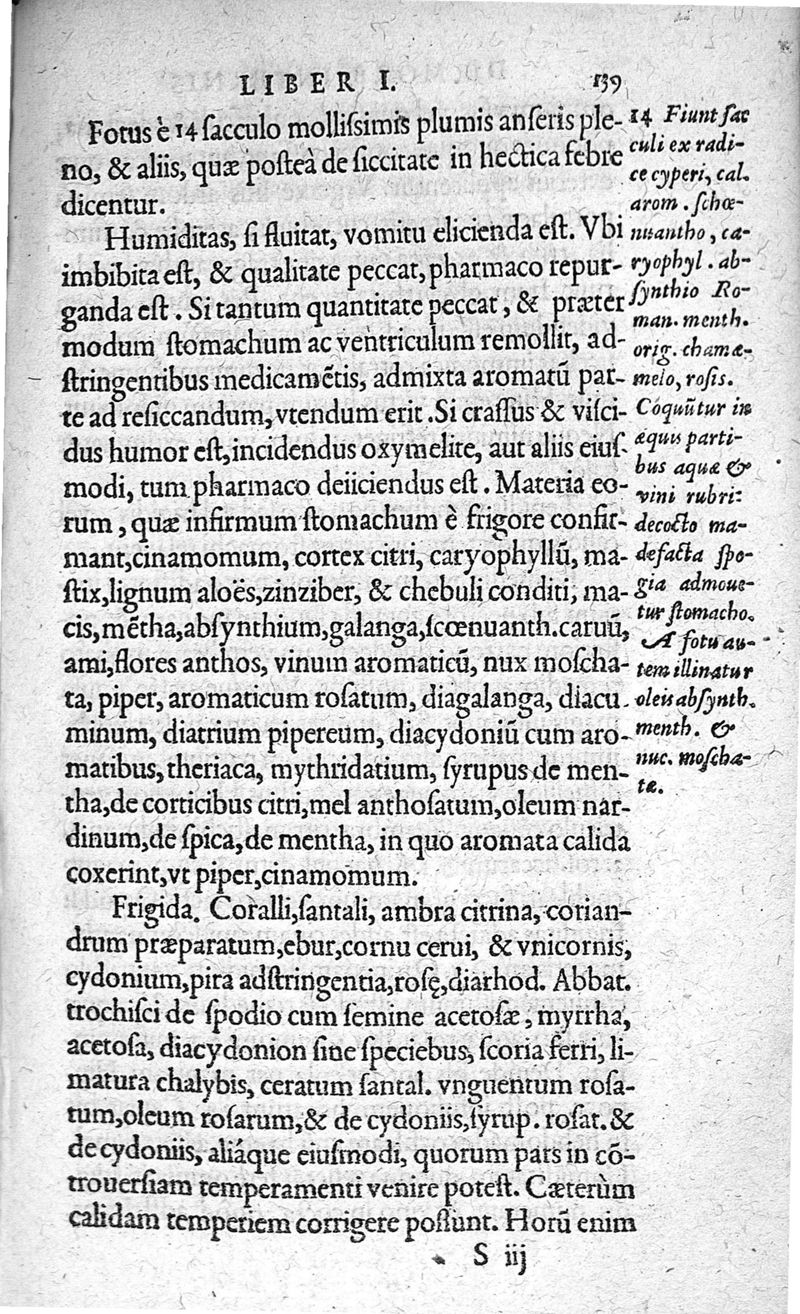 LIBER I. 139
Fotus è 14 ſacculo molliſsimis plumis anſeris ple-
no, & aliis, quæ poſteà de ſiccitate in hectica febre
dicentur.
Humiditas, ſi fluitat, vomitu elicienda eſt. Vbi
imbibita eſt, & qualitate peccat, pharmaco repur-
ganda eſt. Si tantum quantitate peccat, & præter
modum ſtomachum ac ventriculum remollit, ad-
ſtringentibus medicamẽtis, admixta aromatũ par-
te ad reſiccandum, vtendum erit. Si craſſus & viſci-
dus humor eſt, incidendus oxymelite, aut aliis eiuſ-
modi, tum pharmaco deiiciendus eſt. Materia eo-
rum, quæ infirmum ſtomachum è frigore confir-
mant, cinamomum, cortex citri, caryophyllũ, ma-
ſtix, lignum aloës, zinziber, & chebuli conditi, ma-
cis, mẽtha, abſynthium, galanga, ſcœnuanth. caruũ,
ami, flores anthos, vinum aromaticũ, nux moſcha-
ta, piper, aromaticum roſatum, diagalanga, diacu-
minum, diatrium pipereum, diacydoniũ cum aro-
matibus, theriaca, mythridatium, ſyrupus de men-
tha, de corticibus citri, mel anthoſatum, oleum nar-
dinum, de ſpica, de mentha, in quo aromata calida
coxerint, vt piper, cinamomum.
Frigida. Coralli, ſantali, ambra citrina, corian-
drum præparatum, ebur, cornu cerui, & vnicornis,
cydonium, pira adſtringentia, roſę, diarhod. Abbat.
trochiſci de ſpodio cum ſemine acetoſæ, myrrha,
acetoſa, diacydonion ſine ſpeciebus, ſcoria ferri, li-
matura chalybis, ceratum ſantal. vnguentum roſa-
tum, oleum roſarum, & de cydoniis, ſyrup. roſat. &
de cydoniis, aliáque eiuſmodi, quorum pars in cõ-
trouerſiam temperamenti venire poteſt. Cæterùm
calidam temperiem corrigere poſſunt. Horũ enim
S iij
14 Fiunt ſac
culi ex radi-
ce cyperi, cal.
arom. ſchœ-
nuantho, ca-
ryophyl. ab-
ſynthio Ro-
man. menth.
orig. chamæ-
melo, roſis.
Coquũtur in
æquis parti-
bus aquæ &
vini rubri:
decocto ma-
defacta ſpo-
gia admoue-
tur ſtomacho.
A fotu au-
tem illinatur
oleis abſynth.
menth. &
nuc. moſcha-
tæ.